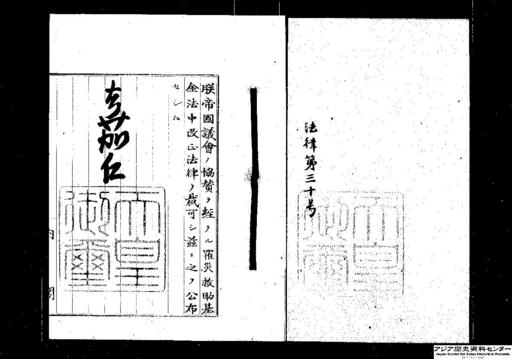 法律第三十号
朕帝国議會ノ協賛ヲ経タル罹災救助基
金法中改正法律ヲ裁可シ茲ニ之ヲ公布
セシム
嘉仁
天皇
御璽
内
閣
アジア歴史資料センター
Japan Center for Asian Historical Records